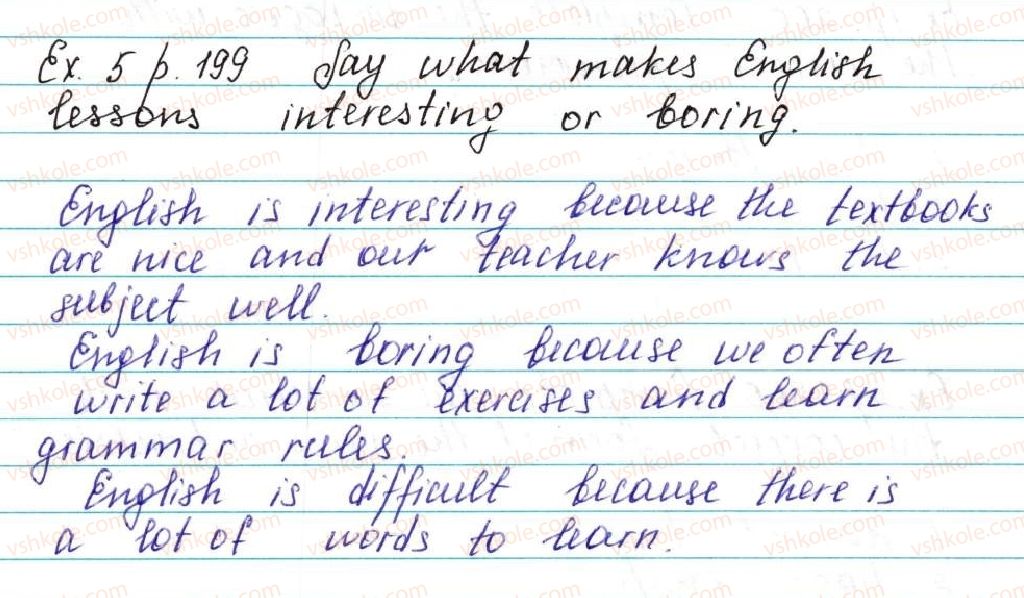 Ex. 5 p. 199 Say what makes English
lessons interesting or boring.
English is interesting because the textbooks
are nice and our teacher knows the
subject well.
English is boring because we often
write a lot of exercises and learn
grammar rules.
English is difficult because there is
a lot of words to learn.
vshkole.com